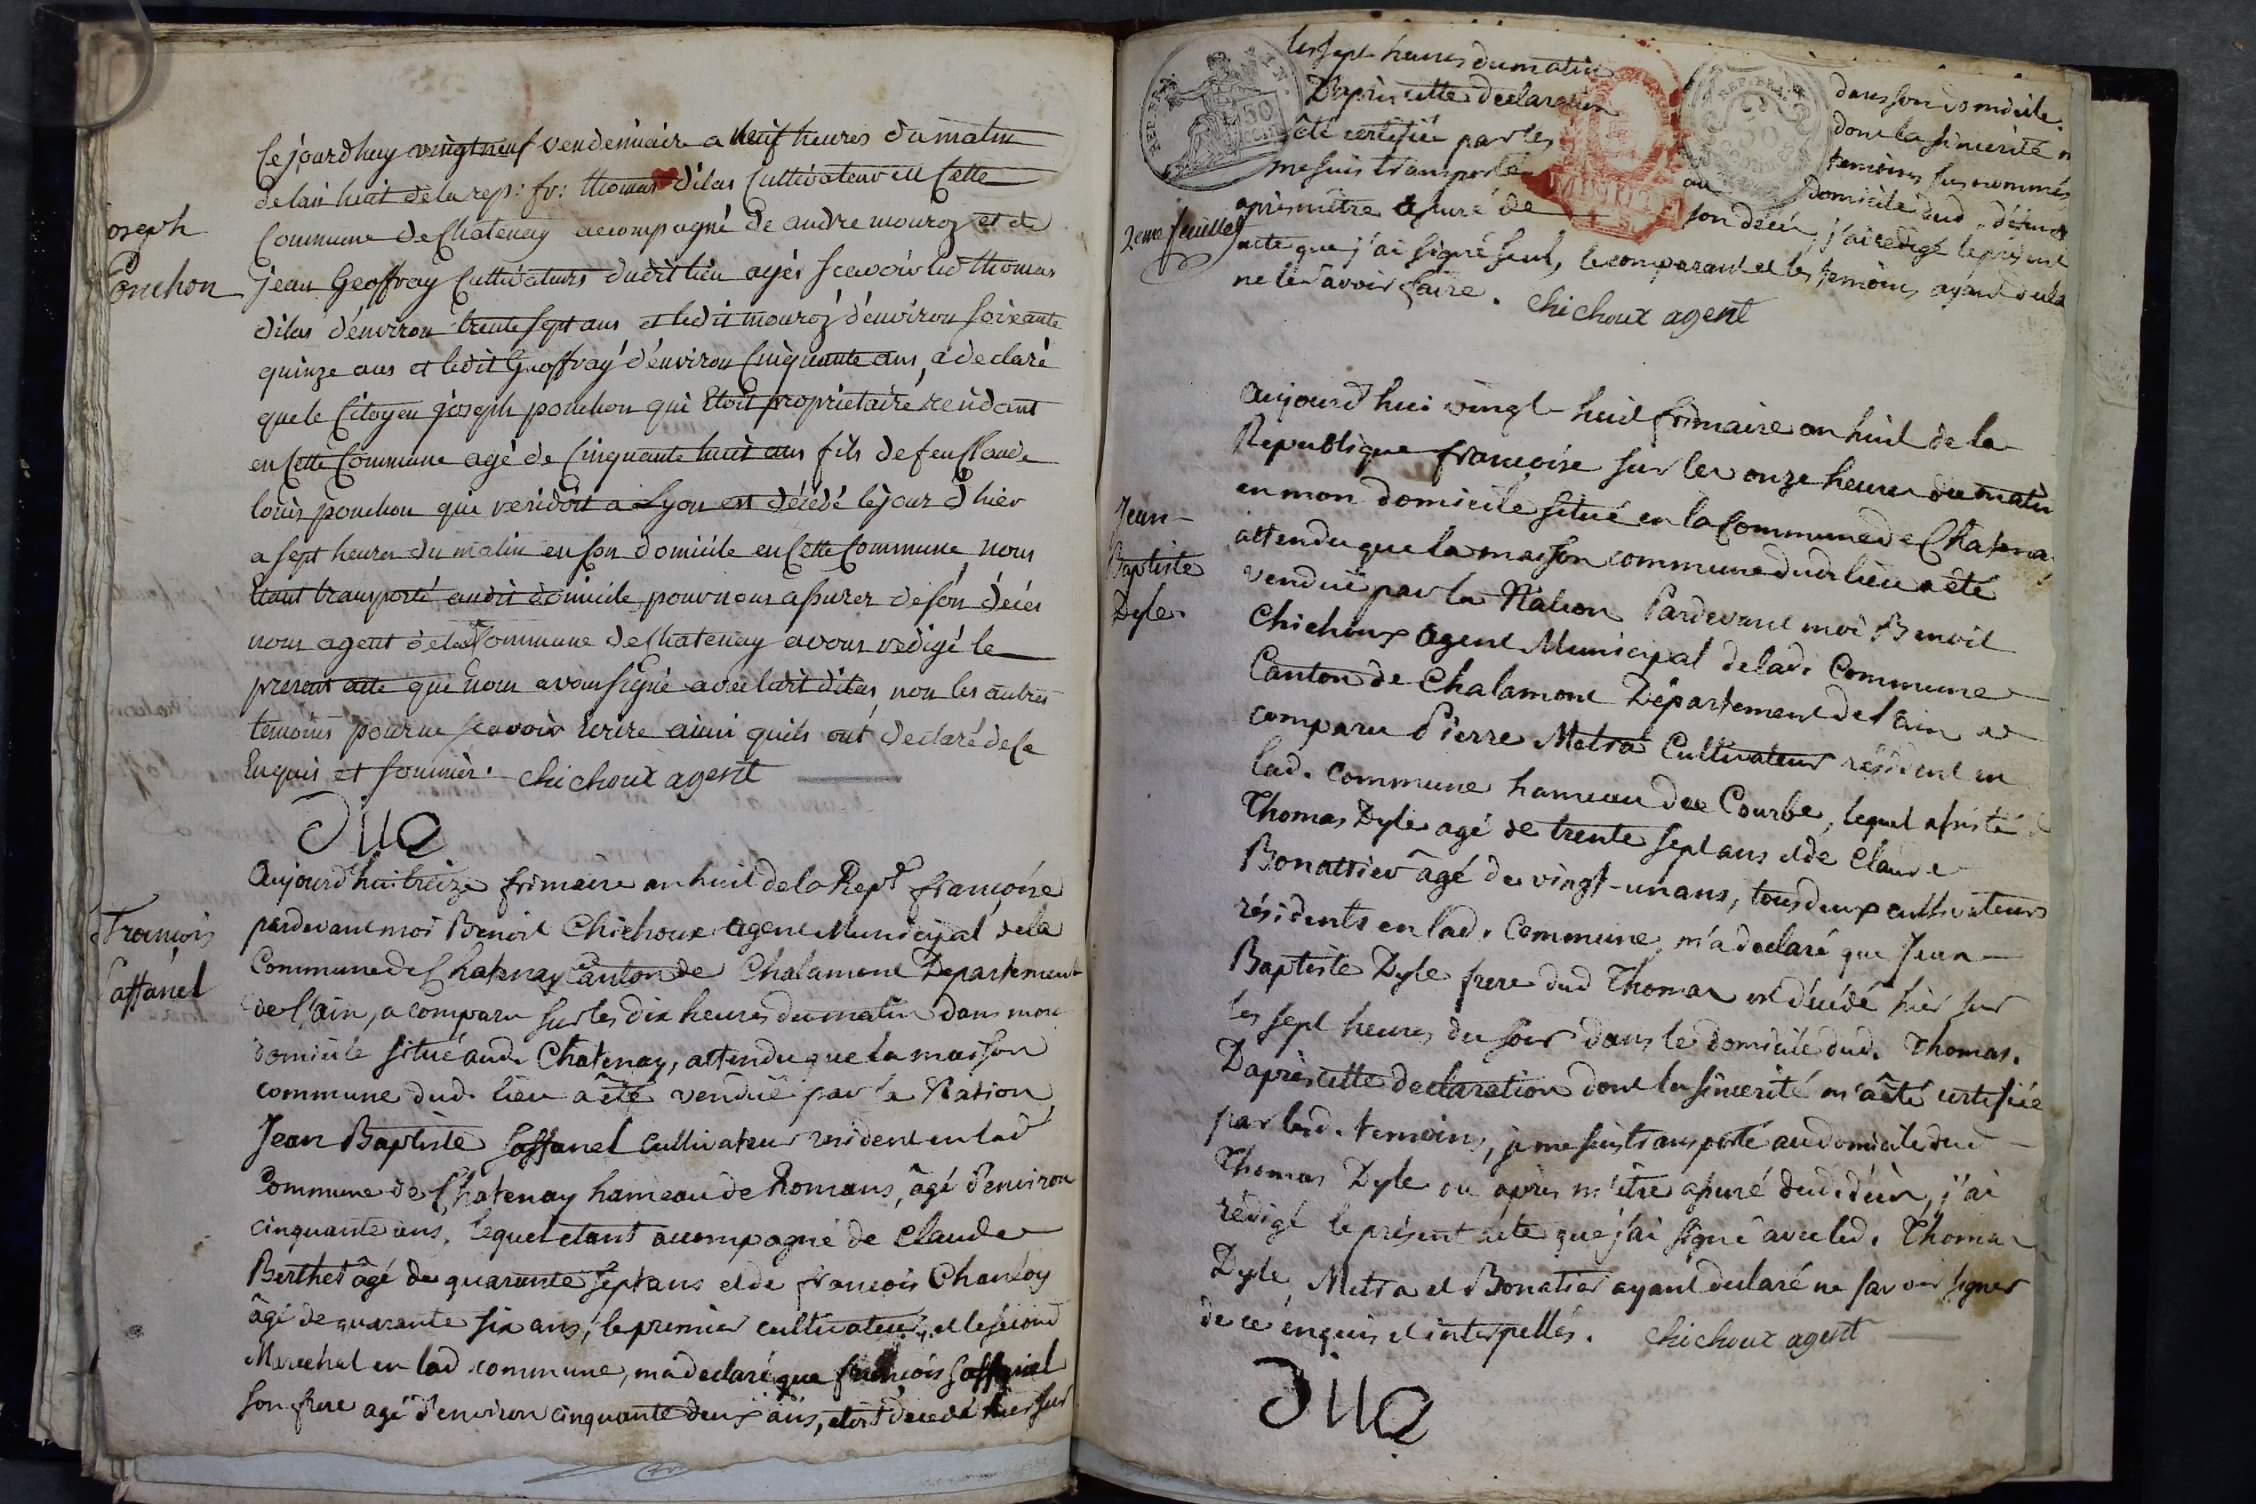 Joseph
Ponchon
Cejourdhuy vingtneuf vendemiaire a neuf heures du matin
de lan huit de la rep: fr: thomas dilas Cultivateur en Cette
Commune de Chatenay accompagné de andre mouroz et de
jean Geoffray Cultivateurs dudit lieu agés scavoir led thomas
dilas d'environ trente sept ans et ledit mouroz d'environ soixante
quinze ans et ledit Geoffray d'environ Cinquante ans, a declaré
que le Citoyen joseph ponchon qui Etoit propriétaire residant
en Cette Commune agé de Cinquante huit ans fils de feu Claude
louis ponchon qui residoit a Lyon est décédé le jour d'hier
a sept heures du matin en son domicile en Cette Commune, nous
Etant transporté audit domicile, pour nous assurer de son décès
nous agent de la Commune de Chatenay avons redigé le
present acte que nous avons signé avec ledit dilas, non les autres
temoins pour ne scavoir Ecrire ainsi quils ont declaré de ce
Enquis et sommés. chichoux agent
Dile
François
Saffanel
Aujourd'hui treize frimaire an huit de la Repe françoise
pardevant moi Benoit Chichoux agent Municipal de la
Commune de Chatenay Canton de Chalamont Departement
de l'ain, a comparu sur les dix heures du matin dans mon
domicile situé aud. Chatenay, attendu que la maison
commune dud. lieu a été vendue par la Nation
Jean Baptiste Saffanel cultivateur resident en lad
Commune de Chatenay hameau de Romans, âgé d'environ
cinquante ans, lequel étant accompagné de Claude
Berthet âgé de quarante sept ans et de françois Chanloy
âgé de quarante six ans, le premier cultivateur, et le second
Marechal en lad commune, m'a declaré que françois Saffanel
son frere agé d'environ cinquante deux ans, étoit décédé hier sur
les sept heures du matin dans son domicile.
D'après cette declaration dont la sincerité m
été certifiée par les temoins susnommés
me suis transporté au domicile dud. défunt
2eme feuillet
après m'être assuré de son décès, j'ai redigé le présent
acte que j'ai signé seul, le comparant et les temoins ayant decla
ne le savoir faire. chichoux agent
REP. FRA.
50
CENT.
REP. FRA.
50
CENTIMES
MINUTE
Jean-
Baptiste
Dyle.
Aujourd'hui vingt-huit frimaire an huit de la
Republique françoise sur les onze heures du matin
en mon domicile situé en la Commune de Chatena
attendu que la maison commune dudt lieu a été
vendue par la Nation Pardevant moi Benoit
Chichoux agent Municipal de lad. Commune
Canton de Chalamont Département de l'ain a
comparu Pierre Metra Cultivateur résident en
lad. commune hameau de Courbe, lequel assisté d
Thomas Dyle agé de trente sept ans et de Claude
Bonattier âgé de vingt-un ans, tous deux cultivateurs
résidents en lad. Commune, m'a declaré que Jean-
Baptiste Dyle frere dud Thomas est décédé hier sur
les sept heures du soir dans le domicile dud. Thomas.
D'après cette declaration dont la sincerité m'a été certifiée
par lesd. temoins, je me suis transporté au domicile dud
Thomas Dyle ou après m'être assuré dud. décès, j'ai
rédigé le présent acte que j'ai signé avec led. Thomas
Dyle, Metra et Bonatier ayant declaré ne savoir signer
de ce enquis et interpellés. chichoux agent
Dile